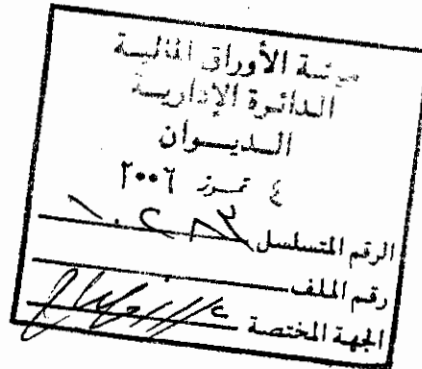 هيئة الأوراق المالية
الدائرة الإدارية
الديوان
٤ تموز ٢٠٠٦
الرقم المتسلسل
رقم الملف
الجهة المختصة